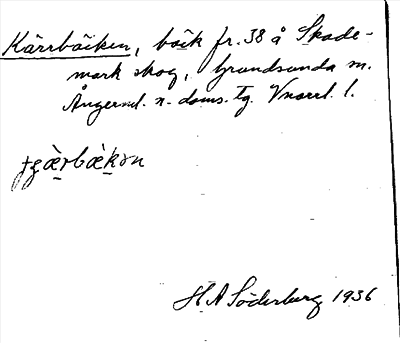 Kärrbäcken, bäck fr. 38 å Skade-
mark skog, Grundsunda sn.
Ångerml. n. doms. tg. Vnorrl. l.
H A Söderberg 1936